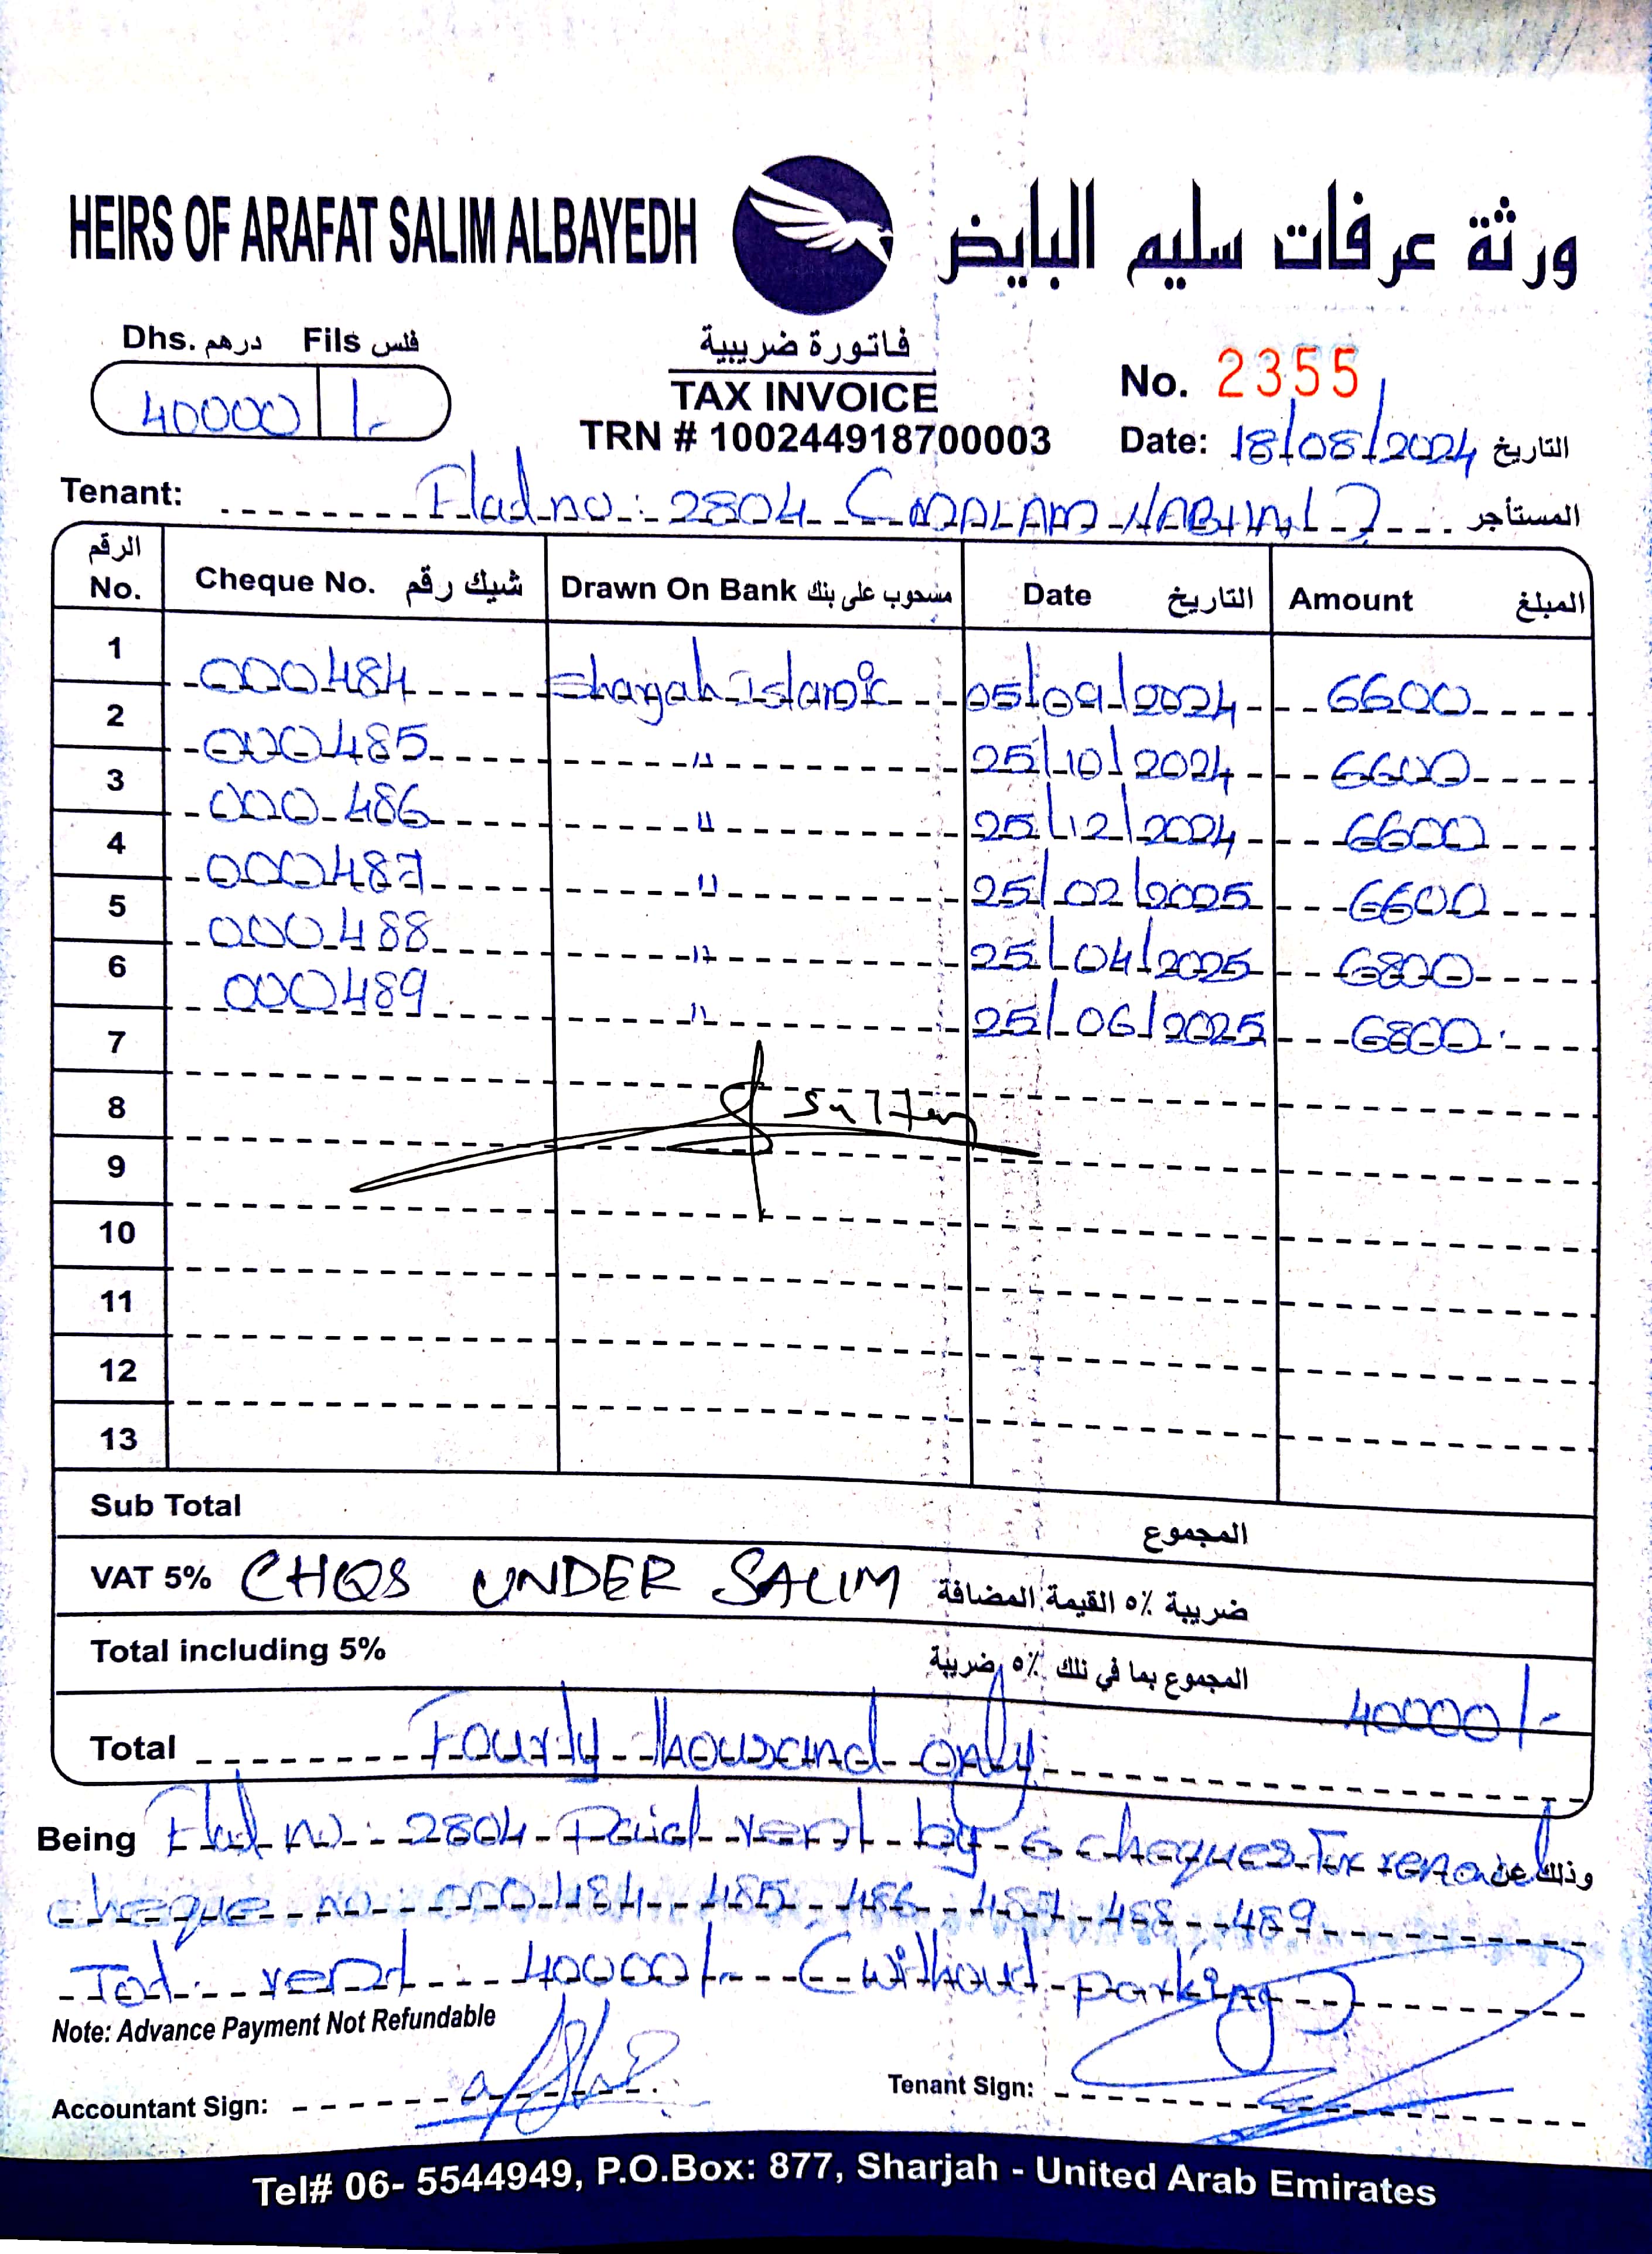 HEIRS OF ARAFAT SALIM ALBAYEDH ورثة عرفات سليم البايض
Dhs. درهم Fils فلس
40000 /-
فاتورة ضريبية
TAX INVOICE
TRN # 100244918700003
No. 2355
Date: 18/08/2024 التاريخ
Tenant: Flat no: 2804 المستأجر
الرقم No. Cheque No. شيك رقم Drawn On Bank مسحوب على بنك Date التاريخ Amount المبلغ
1 000484 Sharjah Islamic 05/09/2024 6600
2 000485 " 25/10/2024 6600
3 000486 " 25/12/2024 6600
4 000487 " 25/02/2025 6600
5 000488 " 25/04/2025 6800
6 000489 " 25/06/2025 6800
7
8 Sultan
9
10
11
12
13
Sub Total المجموع
VAT 5% CHQS UNDER SALIM ضريبة ٥٪ القيمة المضافة
Total including 5% المجموع بما في ذلك ٥٪ ضريبة 40000/-
Total Fourty thousand only
Being Flat no: 2804 Paid rent by 6 cheques For وذلك عن
cheque no: 000484 - 485 - 486 - 487 - 488 - 489
Tot: rent: 40000/- (without parking)
Note: Advance Payment Not Refundable
Accountant Sign: Tenant Sign:
Tel# 06- 5544949, P.O.Box: 877, Sharjah - United Arab Emirates